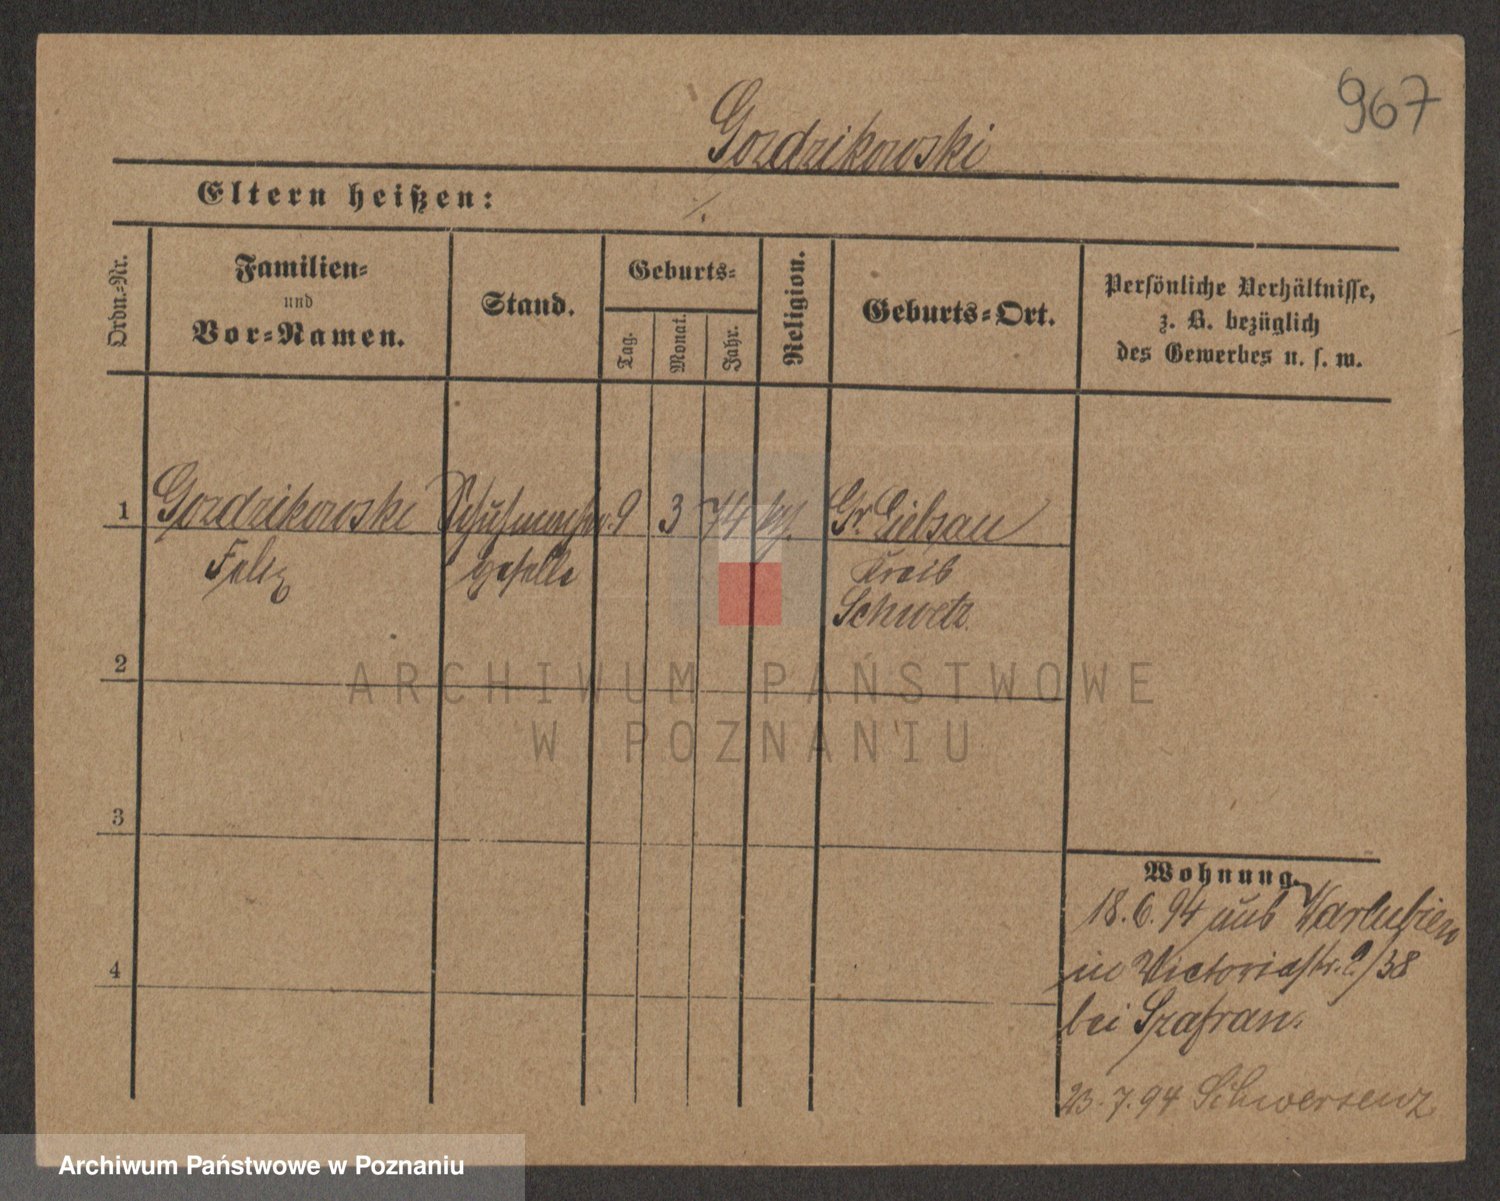 967
Gozdzikowski
Eltern heißen: ⁒
Ordn.-Nr.
Familien-
und
Vor-Namen.
Stand.
Geburts-
Tag.
Monat.
Jahr.
Religion.
Geburts-Ort.
Persönliche Verhältnisse,
z. B. bezüglich
des Gewerbes u. s. w.
1 Gozdzikowski Schuhmacher 9 3 74 k. Gr.
Felix geselle Kreis
Schwetz
2
ARCHIWUM PAŃSTWOWE
W POZNANIU
3
4
Wohnung.
18.6.94 aus Warlubien
in Victoriastr. /38
bei Szafran.
23.7.94 Schwersenz
Archiwum Państwowe w Poznaniu